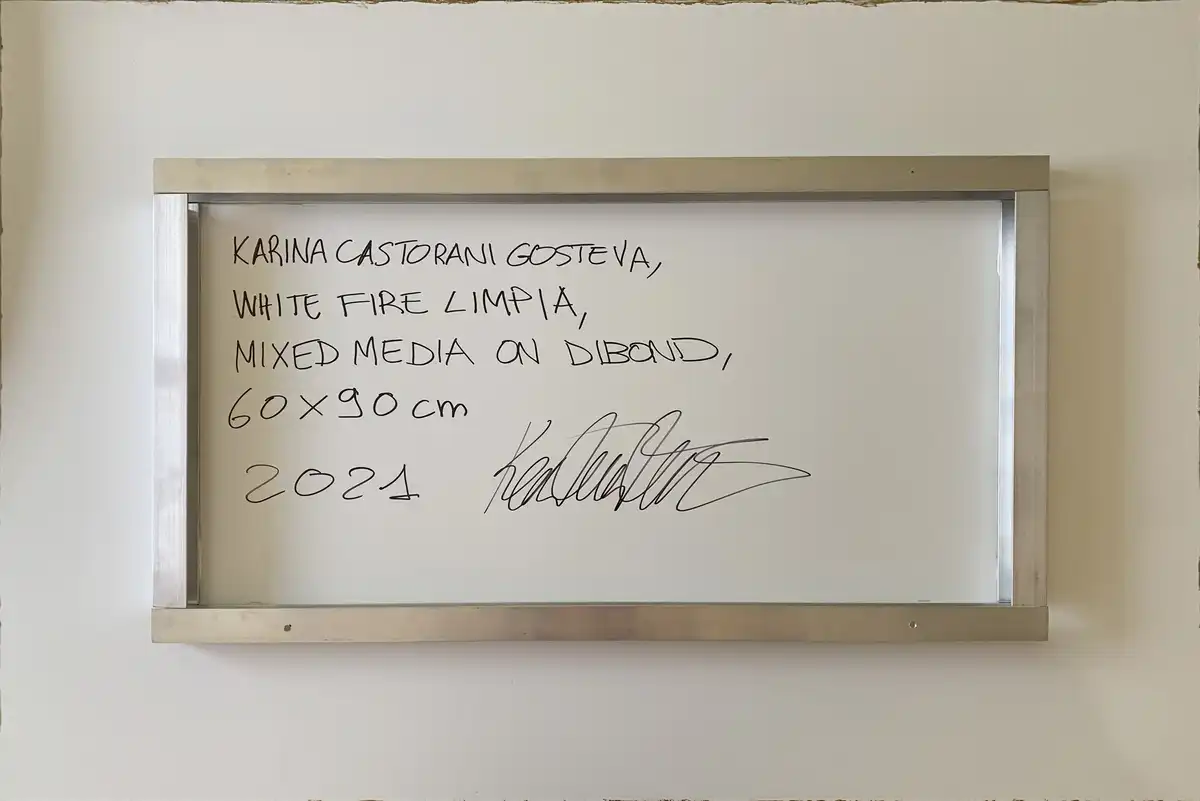 KARINA CASTORANI GOSTEVA,
WHITE FIRE LIMPIA,
MIXED MEDIA ON DIBOND,
60 x 90 cm
2021